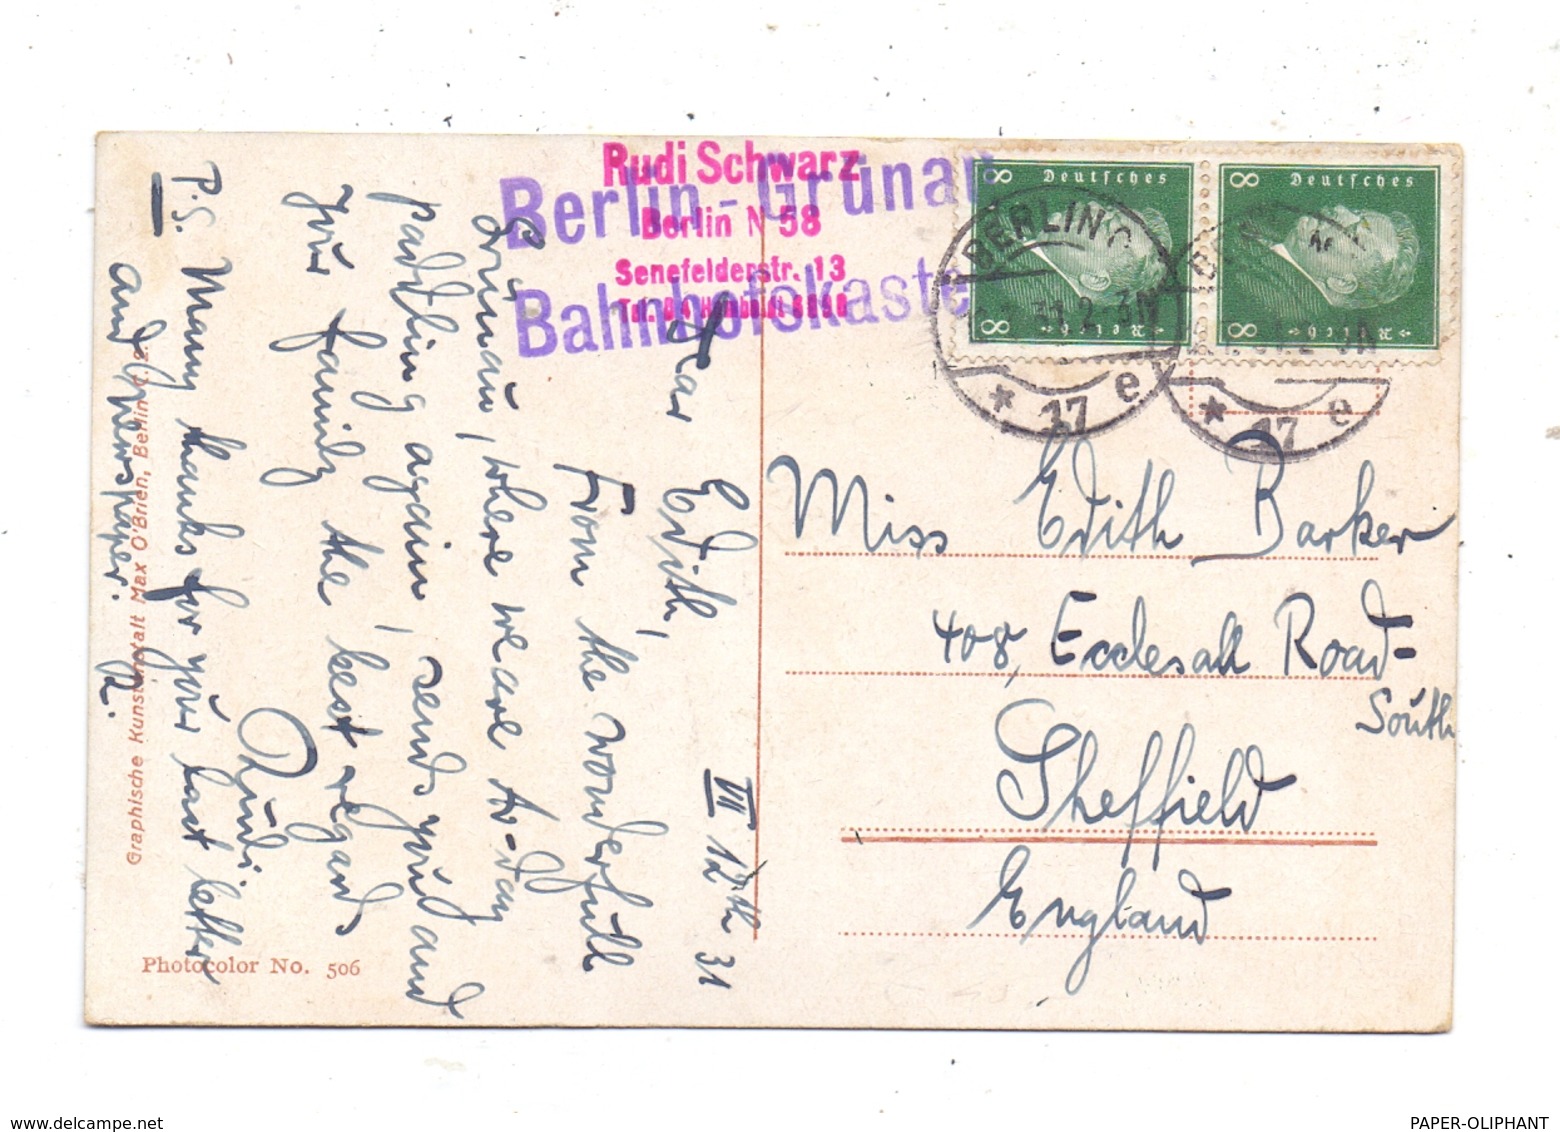 Rudi Schwarz
Berlin N 58
Senefelderstr. 13
Berlin-Grünau
Bahnhofskasten
8 Deutsches Reich 8
8 Deutsches Reich 8
BERLIN
31.2-3N
* 17 e
* 17 e
VII 12th 31
Dear Edith,
From the wonderfull
Grünau, where we are to-day
padling again, send you and
your family the best regards
Rudi
P.S. Many thanks for your last letter
and newspaper. R.
Miss Edith Barker
408, Ecclesall Road-
South
Sheffield
England
Graphische Kunstanstalt Max O'Brien, Berlin C. 2.
Photocolor No. 506
www.delcampe.net
PAPER-OLIPHANT